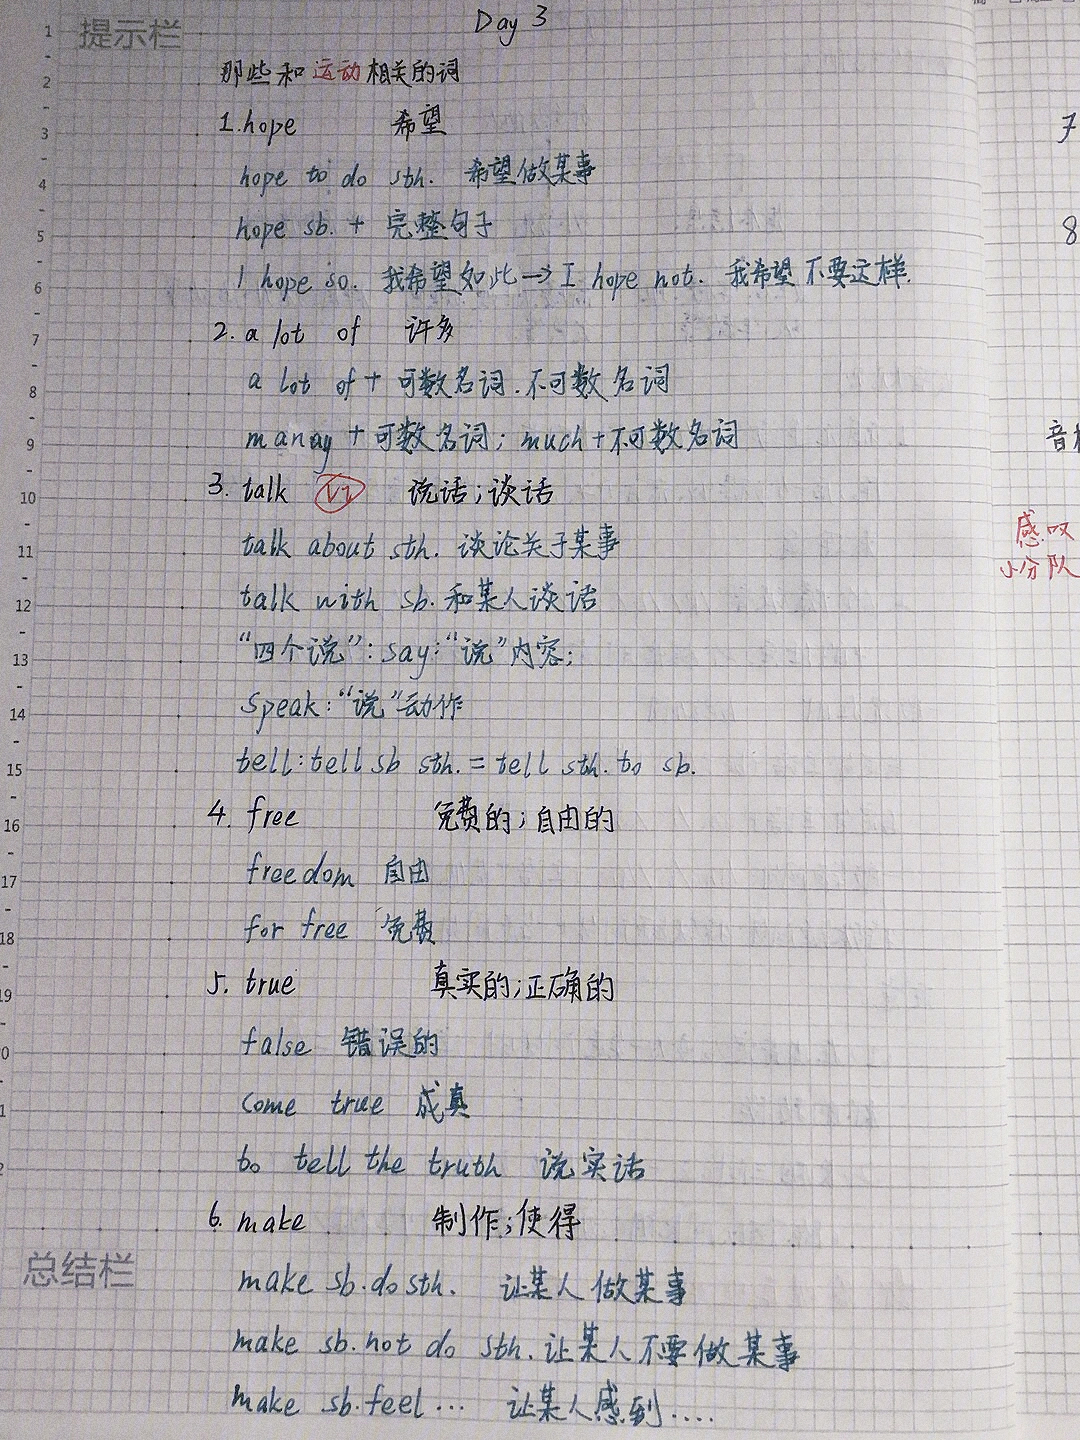 Day 3
提示栏
那些和运动相关的词
1. hope 希望
hope to do sth. 希望做某事
hope sb. + 完整句子
I hope so. 我希望如此 → I hope not. 我希望不要这样.
2. a lot of 许多
a lot of + 可数名词.不可数名词
many + 可数名词; much + 不可数名词
3. talk vi 说话;谈话
talk about sth. 谈论关于某事
talk with sb. 和某人谈话
“四个说”: say: “说”内容;
speak: “说”动作
tell: tell sb sth. = tell sth. to sb.
4. free 免费的;自由的
freedom 自由
for free 免费
5. true 真实的;正确的
false 错误的
come true 成真
to tell the truth 说实话
6. make 制作;使得
总结栏
make sb. do sth. 让某人做某事
make sb. not do sth. 让某人不要做某事
make sb. feel ... 让某人感到....
1
2
3
4
5
6
7
8
9
10
11
12
13
14
15
16
17
18
19
0
1
2
7
8
音
感叹
小分队